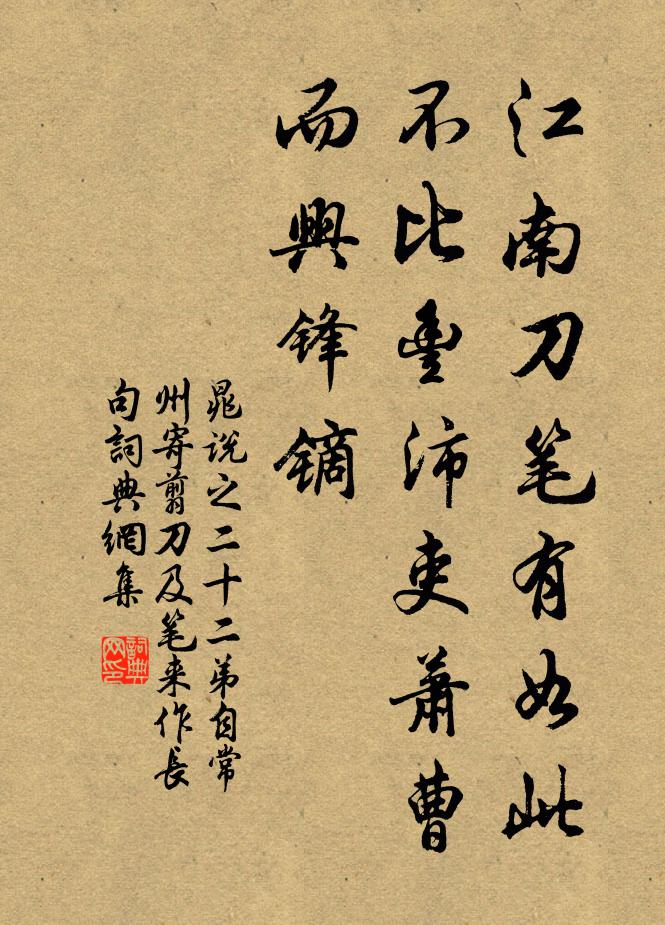 江南刀笔有如此
不比豊沛吏萧曹
而興锋镝
晁说之二十二弟自常
州寄剪刀及笔来作長
句詞典網集
詞典
网印